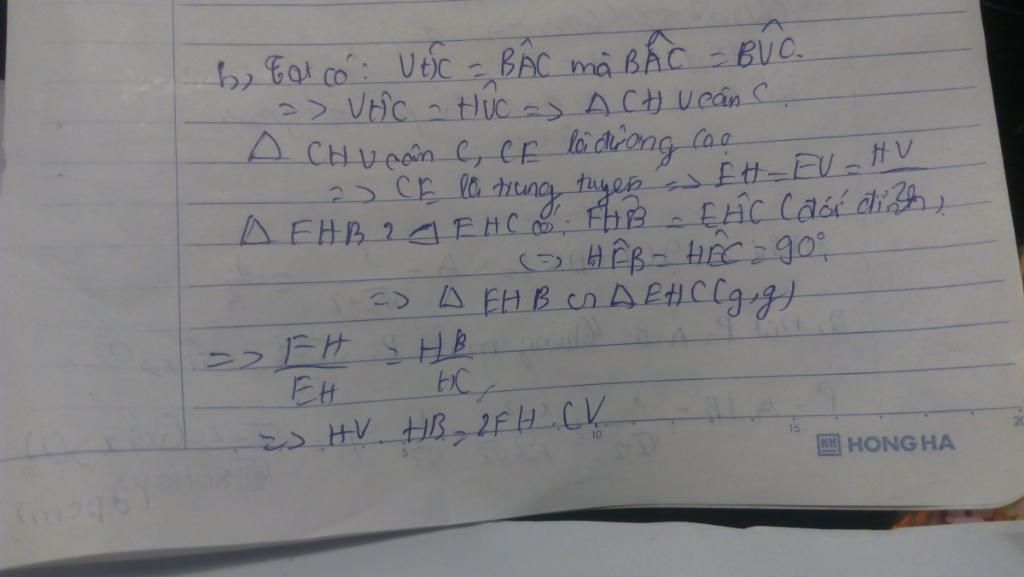 b, Ta có: VĤC = BÂC mà BÂC = BV̂C.
=> VĤC = HV̂C => Δ CHV cân C.
Δ CHV cân C, CE là đường cao
=> CE là trung tuyến => EH = EV = HV/2
Δ FHB ? Δ EHC có: FĤB = EĤC (đối đỉnh)
HF̂B = HÊC = 90°
=> Δ FHB ∽ Δ EHC (g.g)
=> FH/EH = HB/HC
=> HV. HB = 2FH. CV
5 10 15 20
HONG HA